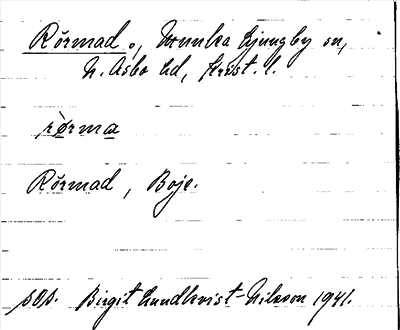 Rörmad o., Munka Ljungby sn,
N. Åsbo hd, Krist. l.
rö̀rma
Rörmad, Boje.
sos. Birgit Lundkvist-Nilsson 1941.